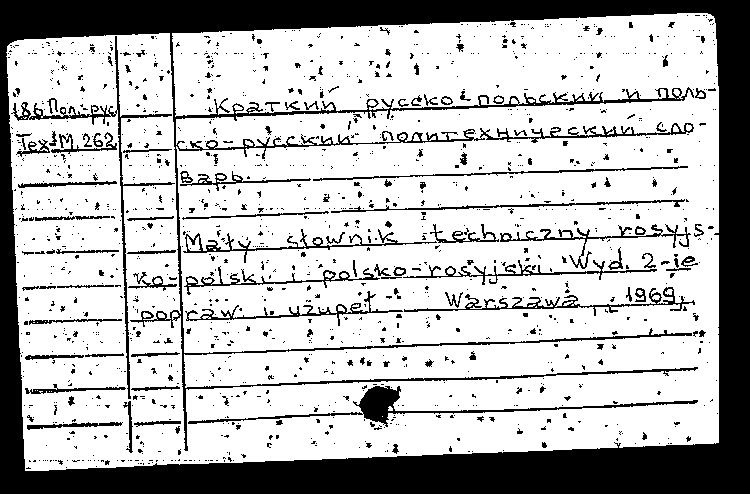 186 Пол.-рус
Тех-М. 262
Краткий русско-польский и поль-
ско-русский политехнический сло-
варь.
Mały słownik techniczny rosyjs-
ko-polski i polsko-rosyjski. Wyd. 2-ie
popraw i uzupeł Warszawa, 1969,